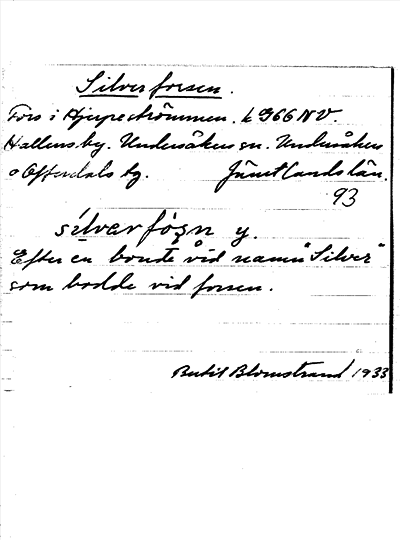 Silverforsen.
Fors i Hjerpeströmmen. k 366 NV.
Hallens by. Undersåkers sn. Undersåkers
o Offerdals tg. Jämtlands län.
93
silvar fọsn y.
Efter en bonde vid namn "Silver"
som bodde vid forsen.
Bertil Blomstrand 1933